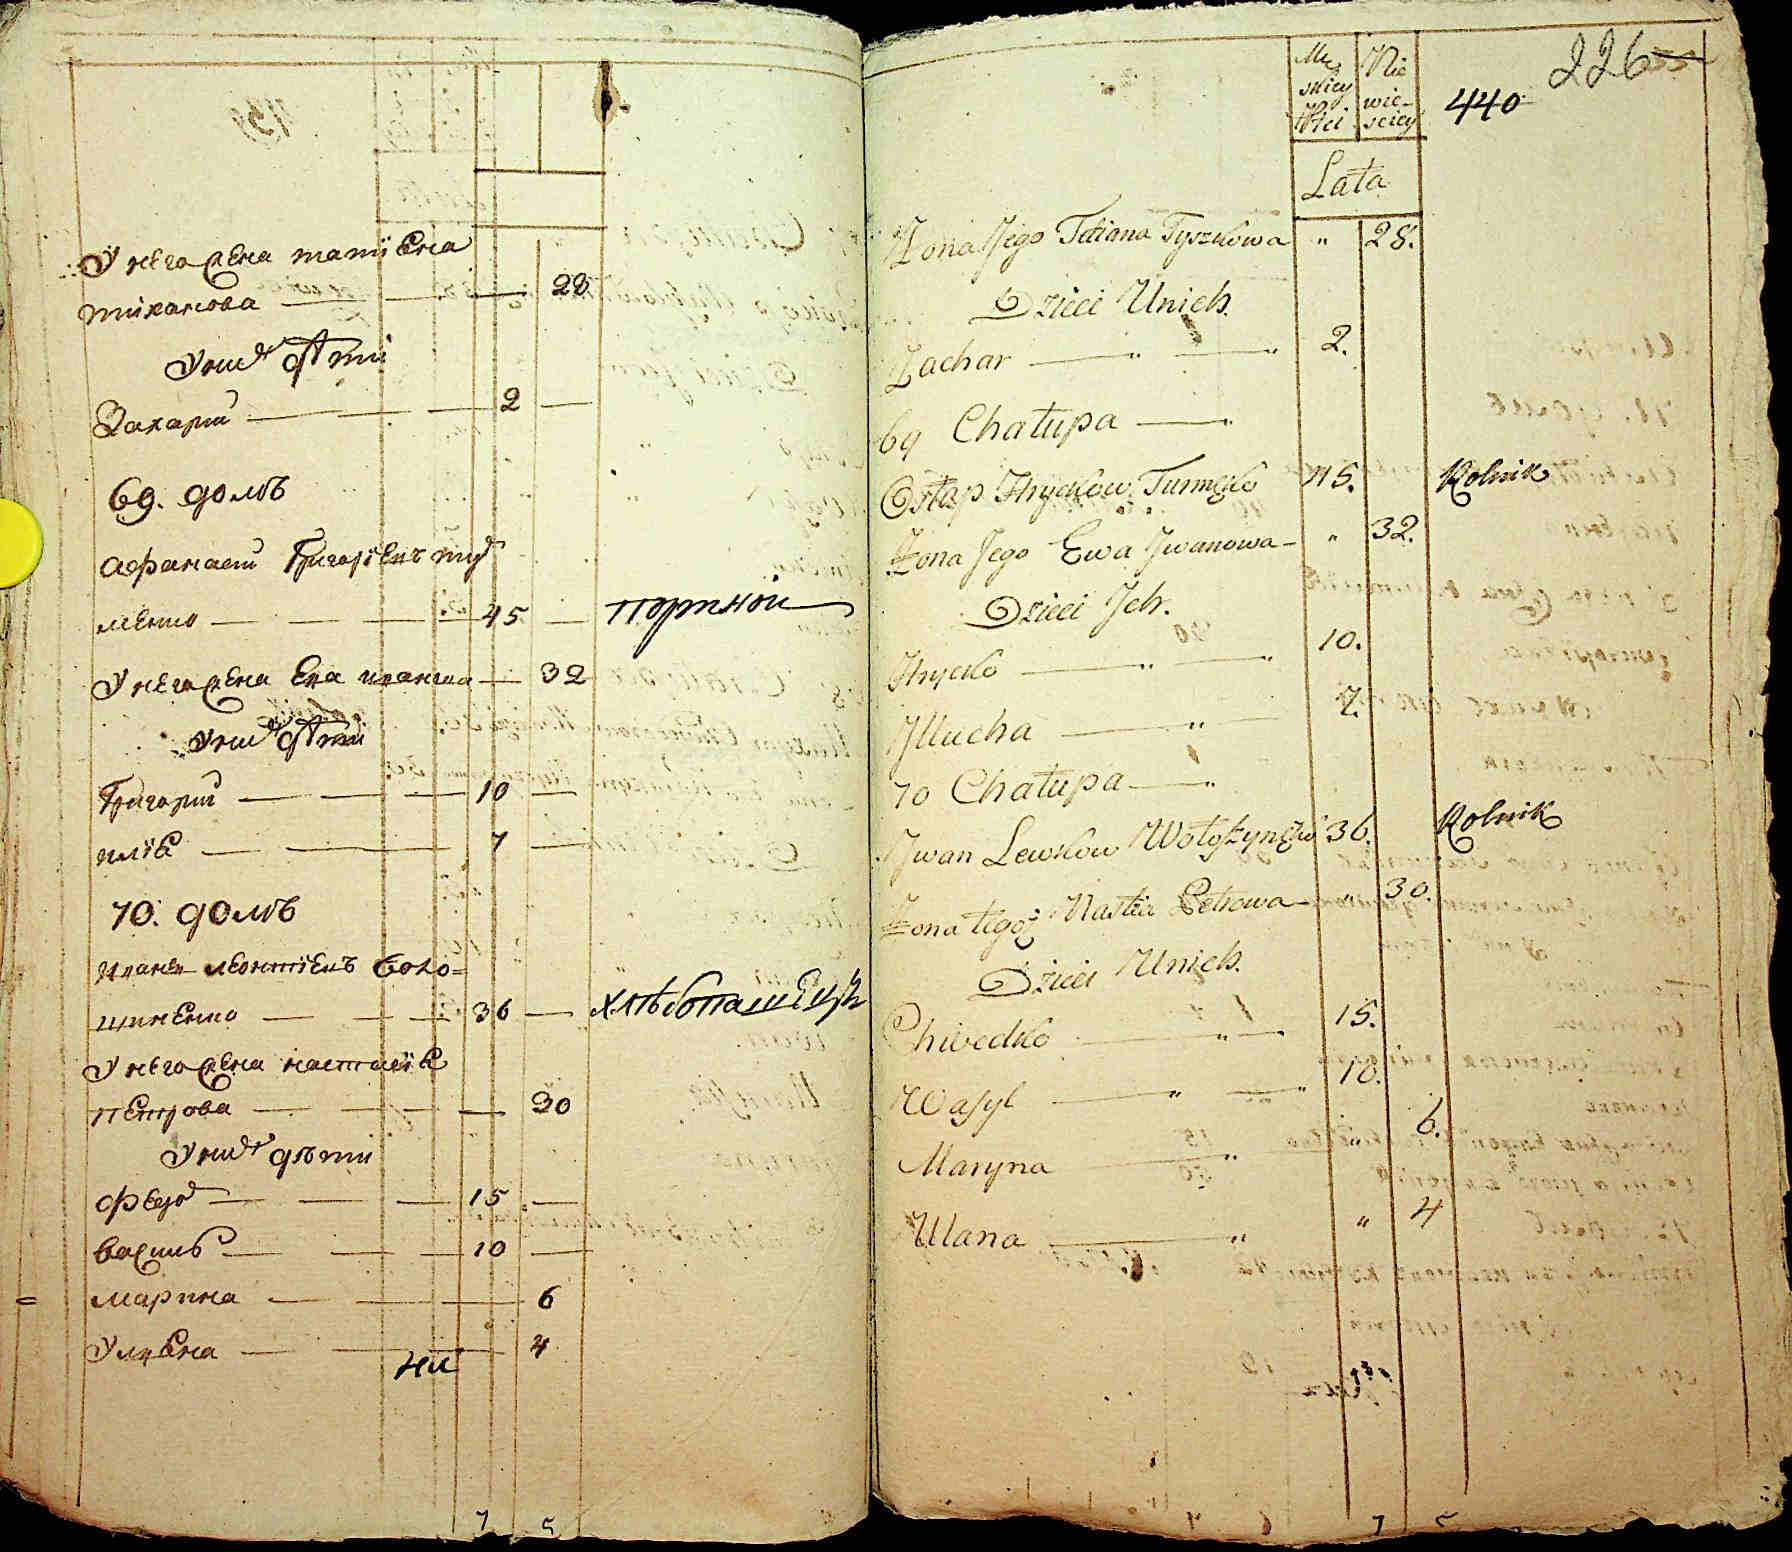 У него жена татиѧна
тиханова — 28
У них дѣти
Захарий — 2 —
69. домъ
афанасий Григориевъ тур
менко — 45 — портной
У него жена Ева иванова — 32
У них дѣти
Григорий — 10 —
илиѧ — 7 —
70. домъ
иванъ леонтиевъ воло=
шиненко — 36 — хлѣбопашецъ
У него жена настасиѧ
петрова — 30
У них дѣти
Федор — 15 —
василь — 10 —
марина — 6
Улиѧна — 4
7 5
226
440
Męskiey Płci
Niewieściey
Lata
Żona Jego Tetiana Tyszkowa " 28.
Dzieci Unich.
Zachar — " — " 2.
69 Chałupa —
Ostap Hryckow Turmęko 45. Rolnik
Żona Jego Ewa Jwanowa — " 32.
Dzieci Jch.
Hrycko — " — " 10.
Jllucha — " — 7.
70 Chałupa —
Jwan Lewkow Wołoszynęko 36. Rolnik
Żona tegoż Nastia Petrowa — " 30.
Dzieci Unich.
Chwedko — " — 15.
Wasyl — " — " 10.
Maryna — " — 6.
Ulana — " " 4
7 5